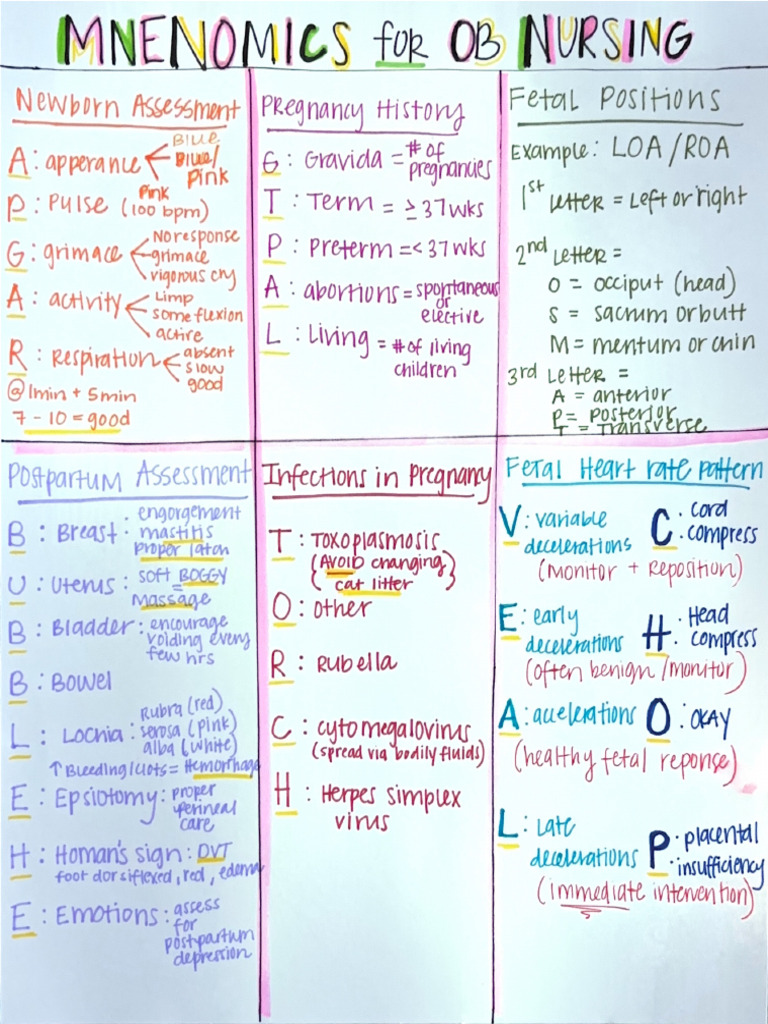 MNENOMICS for OB NURSING
Newborn Assessment
A: apperance
Blue
Blue/
Pink
Pink
P: Pulse (100 bpm)
G: grimace
No response
grimace
vigorous cry
A: activity
Limp
some flexion
active
R: Respiration
absent
slow
good
@1min + 5min
7 - 10 = good
Pregnancy History
G: Gravida = # of
pregnancies
T: Term = ≥ 37 wks
P: Preterm = < 37 wks
A: abortions = spontaneous
or
elective
L: Living = # of living
children
Fetal Positions
Example: LOA/ROA
1st Letter = Left or right
2nd Letter =
O = occiput (head)
S = sacrum or butt
M = mentum or chin
3rd Letter =
A = anterior
P = Posterior
T = Transverse
Postpartum Assessment
B: Breast: engorgement
mastitis
proper latch
U: Uterus: soft BOGGY
=
massage
B: Bladder: encourage
voiding every
few hrs
B: Bowel
L: Lochia: Rubra (red)
serosa (pink)
alba (white)
↑ Bleeding/Clots = Hemorrhage
E: Epsiotomy: proper
perineal
care
H: Homan's sign: DVT
foot dorsiflexed, red, edema
E: Emotions: assess
for
postpartum
depression
Infections in Pregnany
T: Toxoplasmosis
(AVOID changing
cat litter)
O: Other
R: Rubella
C: cytomegalovirus
(spread via bodily fluids)
H: Herpes simplex
virus
Fetal Heart rate pattern
V: variable
decelerations
C · cord
· compress
(monitor + Reposition)
E: early
decelerations
H · Head
· compress
(often benign/monitor)
A: accelerations O: OKAY
(healthy fetal reponse)
L: Late
decelerations
P · placental
· insufficiency
(immediate intervention)